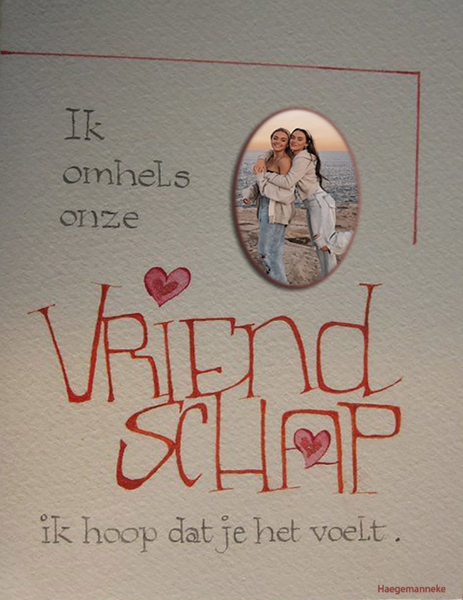 Ik
omhels
onze
VRiEnd
SCHAP
ik hoop dat je het voelt.
Haegemanneke